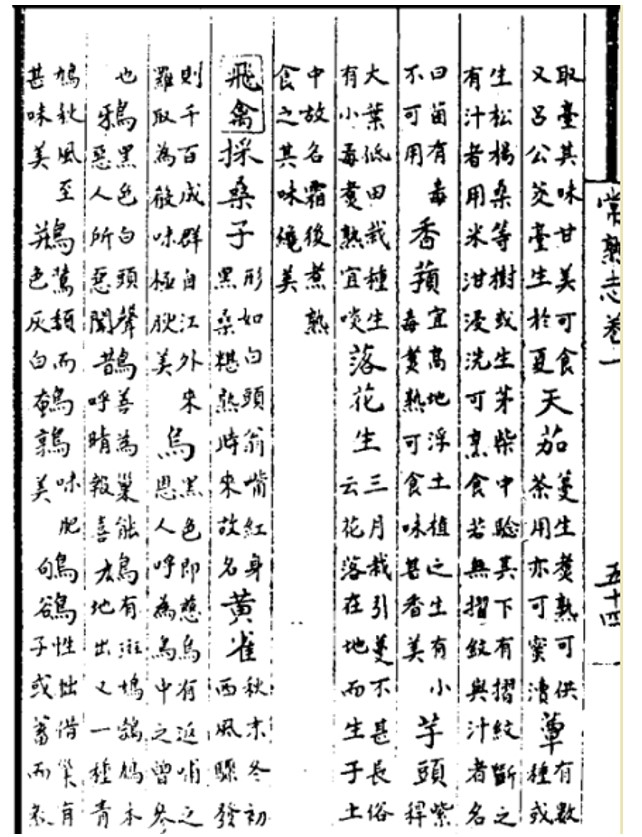 常熟志卷一 五十四
取臺其味甘美可食
又呂公茭臺生於夏
天茄
蔓生煮熟可供
茶用亦可蜜漬
蕈
有數
種或
生松楊桑等樹或生茅柴中驗其下有摺紋斷之
有汁者用米泔浸洗可烹食若無摺紋與汁者名
曰菌有毒
不可用
香蕷
宜高地浮土植之生有小
毒煮熟可食味甚香美
芋頭
紫
稈
大葉低田栽種生
有小毒煮熟宜啖
落花生
三月栽引蔓不甚長俗
云花落在地而生子土
中故名霜後煮熟
食之其味絕美
飛禽
採桑子
形如白頭翁嘴紅身
黑桑椹熟時來故名
黃雀
秋末冬初
西風驟發
則千百成群自江外來
羅取為餚味極腴美
烏
黑色即慈烏有返哺之
恩人呼為烏中之曾參
也
鴉
黑色白頭聲
惡人所惡聞
鵲
善為巢能
呼晴報喜
有斑鳩鵓鳩本
地出又一種青
鳩秋風至
甚味美
類而
色灰白
鵪鶉
味肥
美
鴝鵒
性拙借巢育
子或蓄而